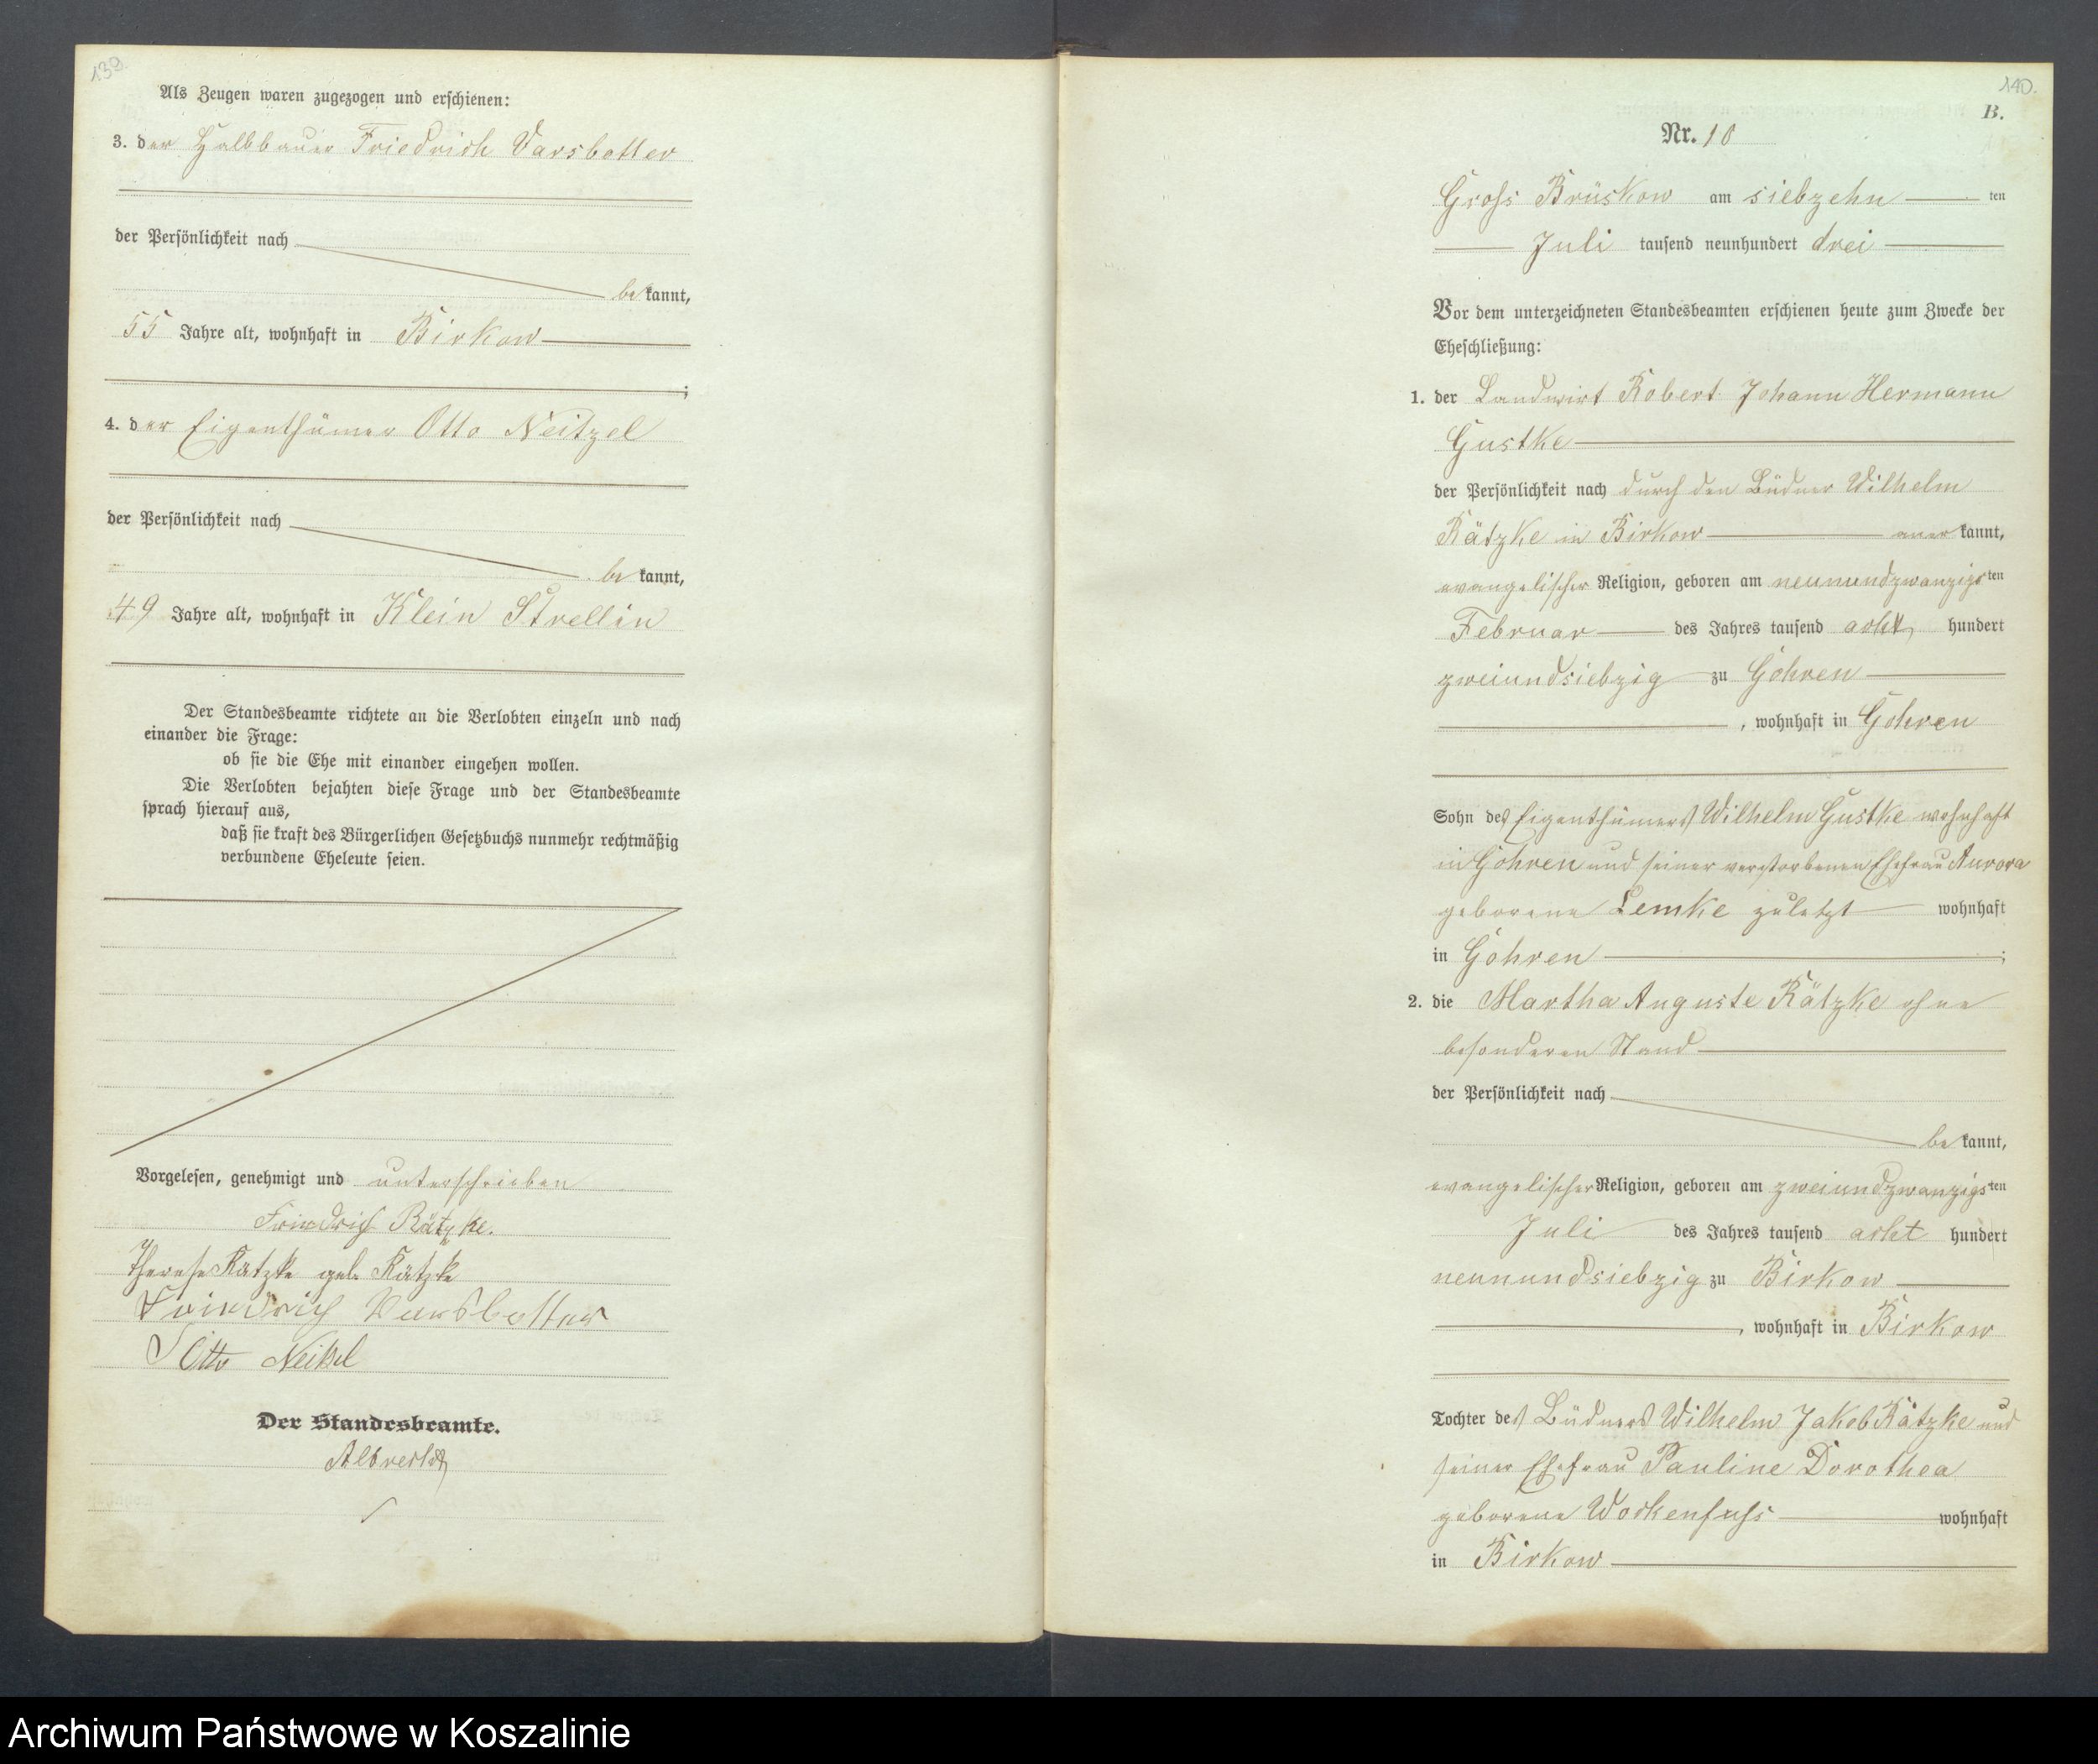 139.
Als Zeugen waren zugezogen und erschienen:
3. der Halbbauer Friedrich Varsbotter
der Persönlichkeit nach
bekannt,
55 Jahre alt, wohnhaft in Birkow
;
4. der Eigenthümer Otto Neitzel
der Persönlichkeit nach
bekannt,
49 Jahre alt, wohnhaft in Klein Strellin
Der Standesbeamte richtete an die Verlobten einzeln und nach
einander die Frage:
ob sie die Ehe mit einander eingehen wollen.
Die Verlobten bejahten diese Frage und der Standesbeamte
sprach hierauf aus,
daß sie kraft des Bürgerlichen Gesetzbuchs nunmehr rechtmäßig
verbundene Eheleute seien.
Vorgelesen, genehmigt und unterschrieben
Friedrich Rätzke.
Therese Rätzke geb. Rätzke
Friedrich Varsbotter
Otto Neitzel
Der Standesbeamte.
Albrecht
140.
B.
Nr. 10
Gross Brüskow am siebzehnten
Juli tausend neunhundert drei
Vor dem unterzeichneten Standesbeamten erschienen heute zum Zwecke der
Eheschließung:
1. der Landwirt Robert Johann Hermann
Gustke
der Persönlichkeit nach durch den Büdner Wilhelm
Rätzke in Birkow anerkannt,
evangelischer Religion, geboren am neunundzwanzigsten
Februar des Jahres tausend acht hundert
zweiundsiebzig zu Gohren
, wohnhaft in Gohren
Sohn des Eigenthümers Wilhelm Gustke wohnhaft
in Gohren und seiner verstorbenen Ehefrau Aurora
geborene Lemke zuletzt wohnhaft
in Gohren ;
2. die Martha Auguste Rätzke ohne
besonderen Stand
der Persönlichkeit nach
bekannt,
evangelischer Religion, geboren am zweiundzwanzigsten
Juli des Jahres tausend acht hundert
neunundsiebzig zu Birkow
, wohnhaft in Birkow
Tochter des Büdners Wilhelm Jakob Rätzke und
seiner Ehefrau Pauline Dorothea
geborene Wockenfuss wohnhaft
in Birkow
Archiwum Państwowe w Koszalinie